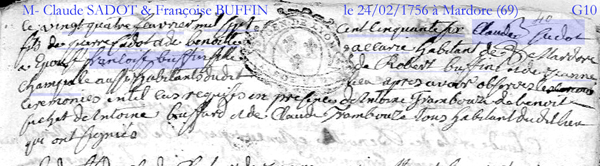 M- Claude SADOT & Françoise BUFFIN le 24/02/1756 à Mardore (69) G10
Le vingt quatre fevrier mil sept cent cinquante six Claude Sadot
fils de pierre Sadot et de benoite allaire habitant de Mardore
a Epousé françoise buffin fille de Robert buffin et de jeanne
Champale aussi habitant dudit lieu apres avoir observé les
ceremonies en tel cas requises en presence de antoine Trambouze de benoit
puchet de antoine buffard et de Claude Trambouze tous habitant dudit lieu
qui ont signés